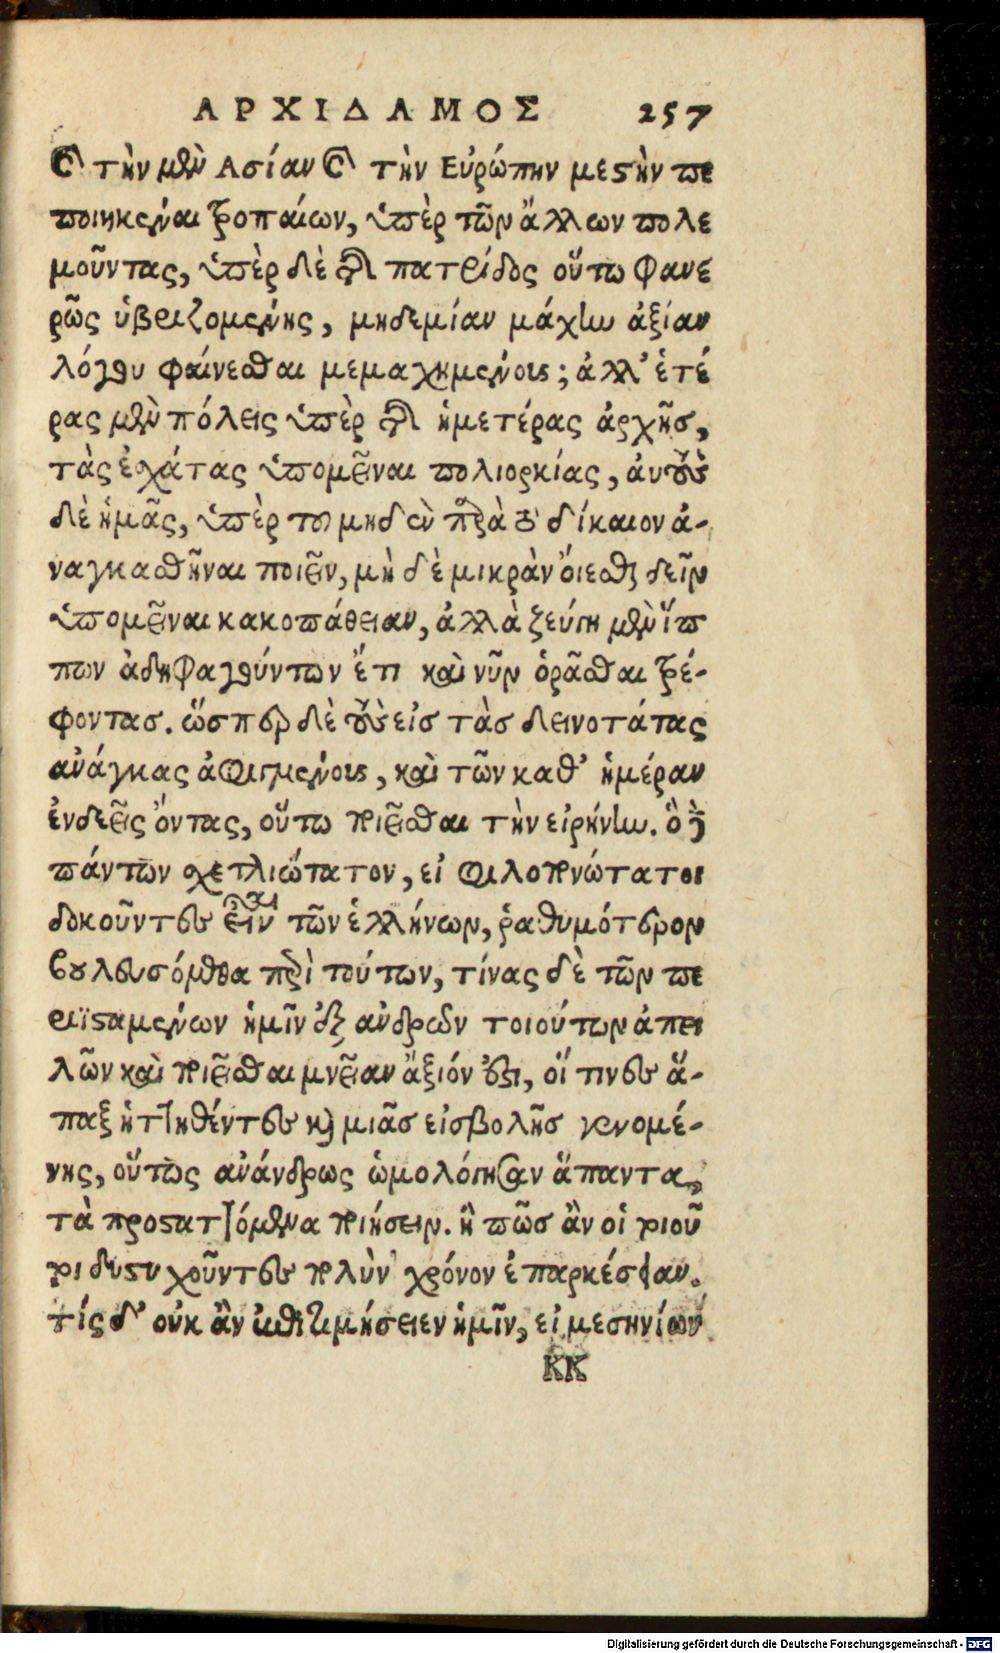 ΑΡΧΙΔΑΜΟΣ 257
καὶ τὴν μὲν Ασίαν καὶ τὴν Εὐρώπην μεστὴν πε
ποιηκέναι τροπαίων, ὑπὲρ τῶν ἄλλων πολε
μοῦντας, ὑπὲρ δὲ τῆς πατρίδος οὕτω φανε
ρῶς ὑβριζομένης, μηδεμίαν μάχην ἀξίαν
λόγου φαίνεσθαι μεμαχημένοις; ἀλλ' ἑτέ
ρας μὲν πόλεις ὑπὲρ τῆς ἡμετέρας ἀρχῆσ,
τὰς ἐσχάτας ὑπομεῖναι πολιορκίας, ἀυτοὺς
δὲ ἡμᾶς, ὑπὲρ τοῦ μηδὲν παρὰ τὸ δίκαιον ἀ-
ναγκασθῆναι ποιεῖν, μὴ δὲ μικρὰν ὄιεσθαι δεῖν
ὑπομεῖναι κακοπάθειαν, ἀλλὰ ζεύγη μὲν ἵπ
πων ἀδηφαγούντων ἔτι καὶ νῦν ὁρᾶσθαι τρέ-
φοντασ. ὥσπερ δὲ τοὺς εἰσ τὰσ δεινοτάτας
ἀνάγκας ἀφιγμένους, καὶ τῶν καθ' ἡμέραν
ἐνδεεῖς ὄντας, οὕτω ποιεῖσθαι τὴν εἰρήνην. ὃ δὲ
πάντων σχετλιώτατον, εἰ φιλοπονώτατοι
δοκοῦντες εἶναι τῶν ἑλλήνων, ῥαθυμότερον
βουλευσόμεθα περὶ τούτων, τίνας δὲ τῶν πε
ριϊσταμένων ἡμῖν ἐξ ἀνδρῶν τοιούτων ἀπει
λῶν καὶ ποιεῖσθαι μνεῖαν ἄξιόν ἐστι, οἵ τινες ἅ-
παξ ἡττηθέντες καὶ μιᾶσ εἰσβολῆσ γενομέ-
νης, οὕτως ἀνάνδρως ὡμολόγησαν ἅπαντα
τὰ προσταττόμενα ποιήσειν. ἢ πῶσ ἂν οἱ τοιοῦ
τοι δυστυχοῦντες πολὺν χρόνον ἐπαρκέσειαν.
τίς δ' οὐκ ἂν ἐπιτιμήσειεν ἡμῖν, εἰ μεσηνίων
KK
Digitalisierung gefördert durch die Deutsche Forschungsgemeinschaft - DFG